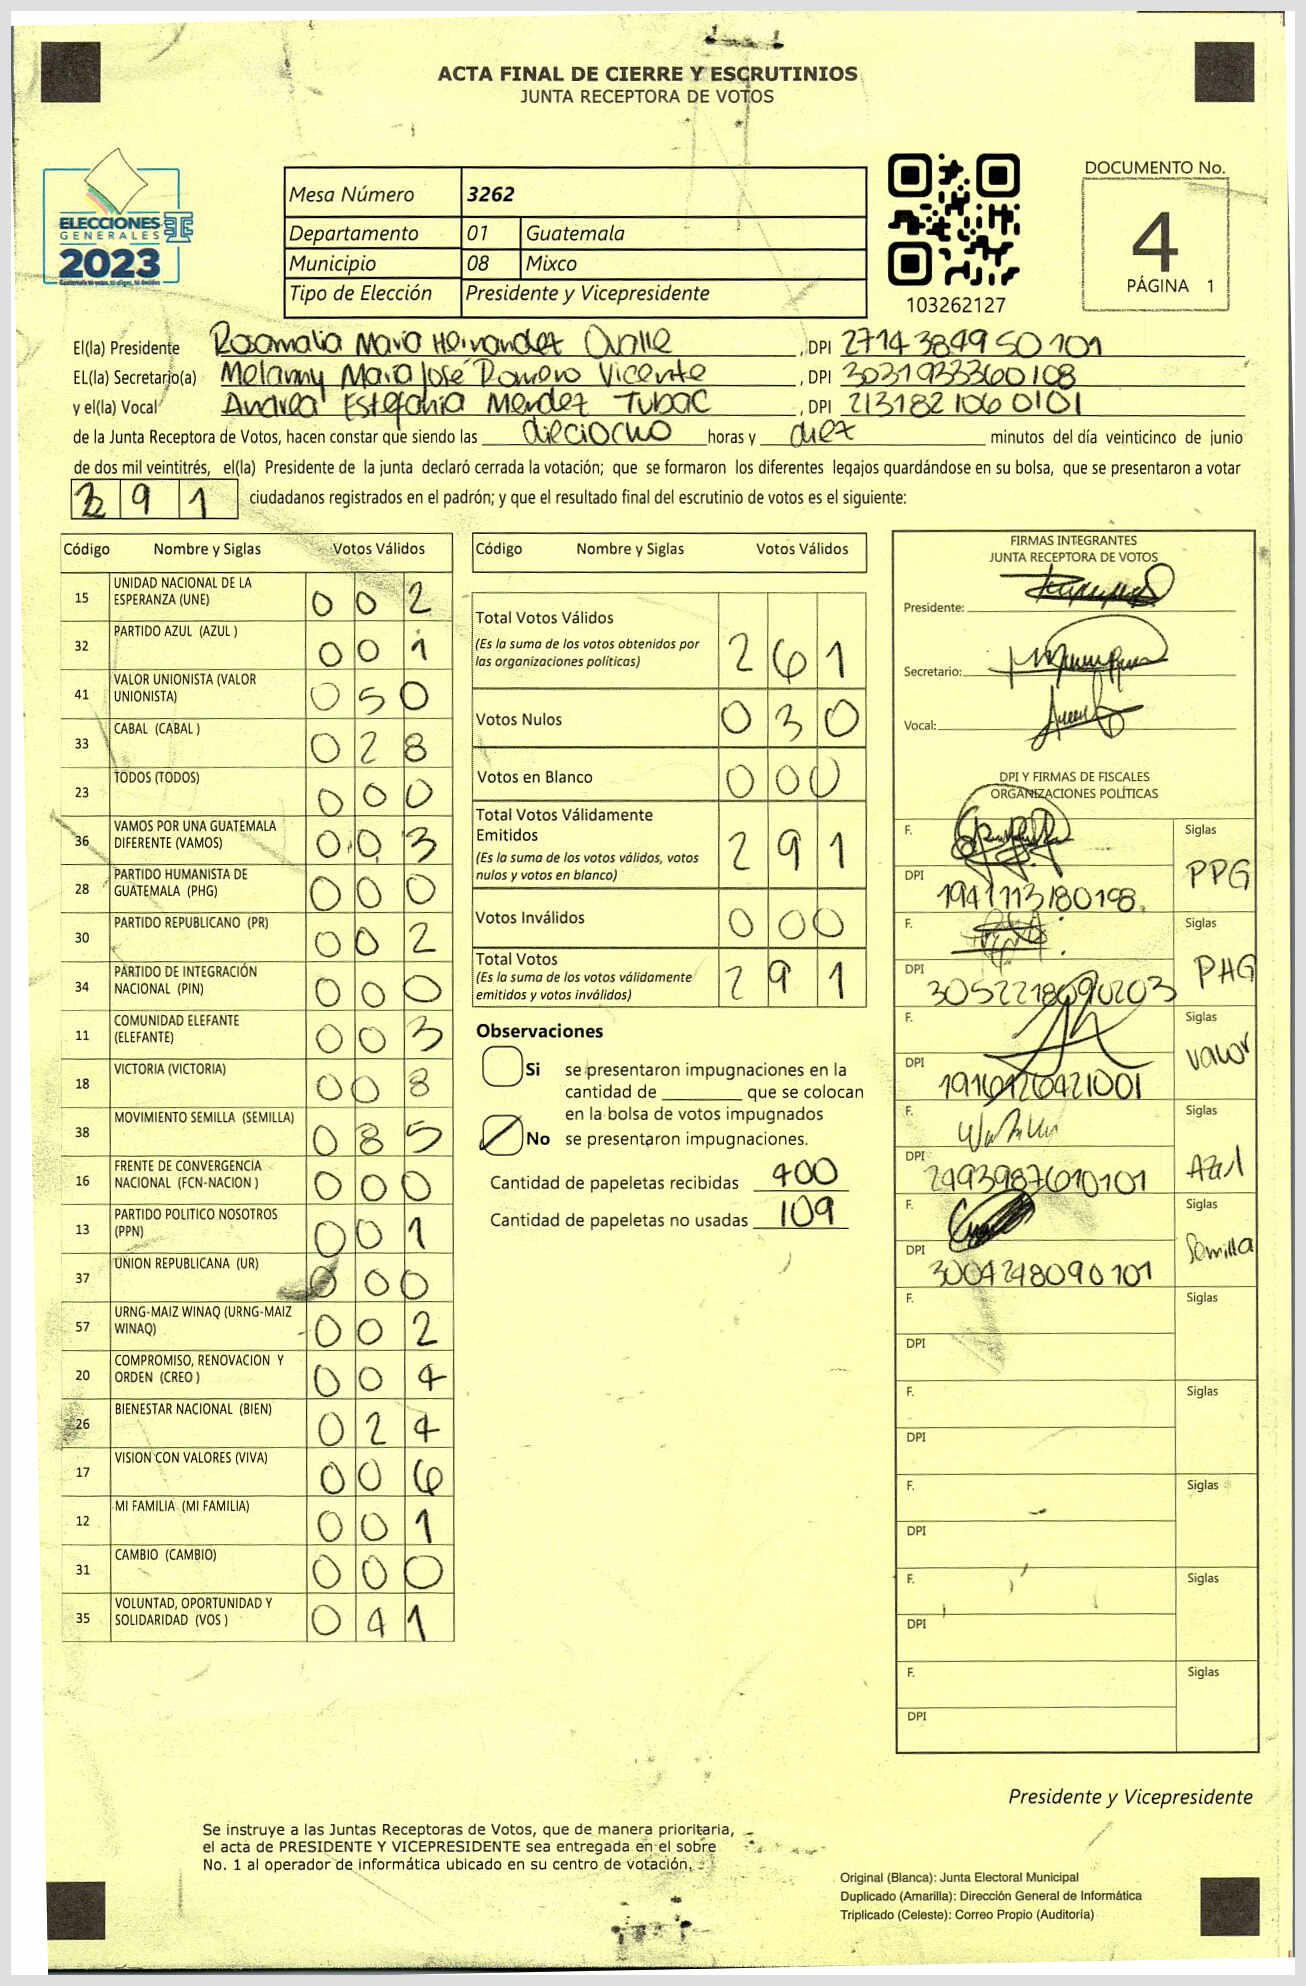 ACTA FINAL DE CIERRE Y ESCRUTINIOS
JUNTA RECEPTORA DE VOTOS
ELECCIONES
GENERALES
2023
Mesa Número 3262
Departamento 01 Guatemala
Municipio 08 Mixco
Tipo de Elección Presidente y Vicepresidente
103262127
DOCUMENTO No.
4
PÁGINA 1
El(la) Presidente Rosamalia Maria Hernandez Ovalle , DPI 2714384950101
EL(la) Secretario(a) Melanny Maria José Romero Vicente , DPI 3031933360108
y el(la) Vocal Andrea Estefania Mendez Tubac , DPI 2131821060101
de la Junta Receptora de Votos, hacen constar que siendo las dieciocho horas y diez minutos del día veinticinco de junio
de dos mil veintitrés, el(la) Presidente de la junta declaró cerrada la votación; que se formaron los diferentes legajos quardándose en su bolsa, que se presentaron a votar
291 ciudadanos registrados en el padrón; y que el resultado final del escrutinio de votos es el siguiente:
Código Nombre y Siglas Votos Válidos
15 UNIDAD NACIONAL DE LA ESPERANZA (UNE) 0 0 2
32 PARTIDO AZUL (AZUL ) 0 0 1
41 VALOR UNIONISTA (VALOR UNIONISTA) 0 5 0
33 CABAL (CABAL ) 0 2 8
23 TODOS (TODOS) 0 0 0
36 VAMOS POR UNA GUATEMALA DIFERENTE (VAMOS) 0 0 3
28 PARTIDO HUMANISTA DE GUATEMALA (PHG) 0 0 0
30 PARTIDO REPUBLICANO (PR) 0 0 2
34 PARTIDO DE INTEGRACIÓN NACIONAL (PIN) 0 0 0
11 COMUNIDAD ELEFANTE (ELEFANTE) 0 0 3
18 VICTORIA (VICTORIA) 0 0 8
38 MOVIMIENTO SEMILLA (SEMILLA) 0 8 5
16 FRENTE DE CONVERGENCIA NACIONAL (FCN-NACION ) 0 0 0
13 PARTIDO POLITICO NOSOTROS (PPN) 0 0 1
37 UNION REPUBLICANA (UR) 0 0 0
57 URNG-MAIZ WINAQ (URNG-MAIZ WINAQ) 0 0 2
20 COMPROMISO, RENOVACION Y ORDEN (CREO ) 0 0 4
26 BIENESTAR NACIONAL (BIEN) 0 2 4
17 VISION CON VALORES (VIVA) 0 0 6
12 MI FAMILIA (MI FAMILIA) 0 0 1
31 CAMBIO (CAMBIO) 0 0 0
35 VOLUNTAD, OPORTUNIDAD Y SOLIDARIDAD (VOS ) 0 4 1
Código Nombre y Siglas Votos Válidos
Total Votos Válidos 2 6 1
(Es la suma de los votos obtenidos por
las organizaciones políticas)
Votos Nulos 0 3 0
Votos en Blanco 0 0 0
Total Votos Válidamente
Emitidos 2 9 1
(Es la suma de los votos válidos, votos
nulos y votos en blanco)
Votos Inválidos 0 0 0
Total Votos 2 9 1
(Es la suma de los votos válidamente
emitidos y votos inválidos)
Observaciones
Si se presentaron impugnaciones en la
cantidad de ________ que se colocan
en la bolsa de votos impugnados
No se presentaron impugnaciones.
Cantidad de papeletas recibidas 400
Cantidad de papeletas no usadas 109
FIRMAS INTEGRANTES
JUNTA RECEPTORA DE VOTOS
Presidente:
Secretario:
Vocal:
DPI Y FIRMAS DE FISCALES
ORGANIZACIONES POLÍTICAS
F. Siglas PPG
DPI 1941113180198
F. Siglas PHG
DPI 3052218090203
F. Siglas Valor
DPI
F. Siglas Azul
DPI 2493987610101
F. Siglas Semilla
DPI 3004248090101
F. Siglas
DPI
F. Siglas
DPI
F. Siglas
DPI
F. Siglas
DPI
F. Siglas
DPI
Presidente y Vicepresidente
Se instruye a las Juntas Receptoras de Votos, que de manera prioritaria,
el acta de PRESIDENTE Y VICEPRESIDENTE sea entregada en el sobre
No. 1 al operador de informática ubicado en su centro de votación.
Original (Blanca): Junta Electoral Municipal
Duplicado (Amarilla): Dirección General de Informática
Triplicado (Celeste): Correo Propio (Auditoría)